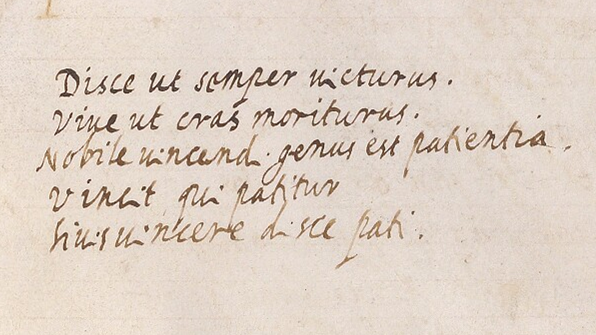 Disce ut semper uicturus.
Viue ut cras moriturus.
Nobile uincend. genus est patientia.
Vincit qui patitur
Si uis uincere disce pati.